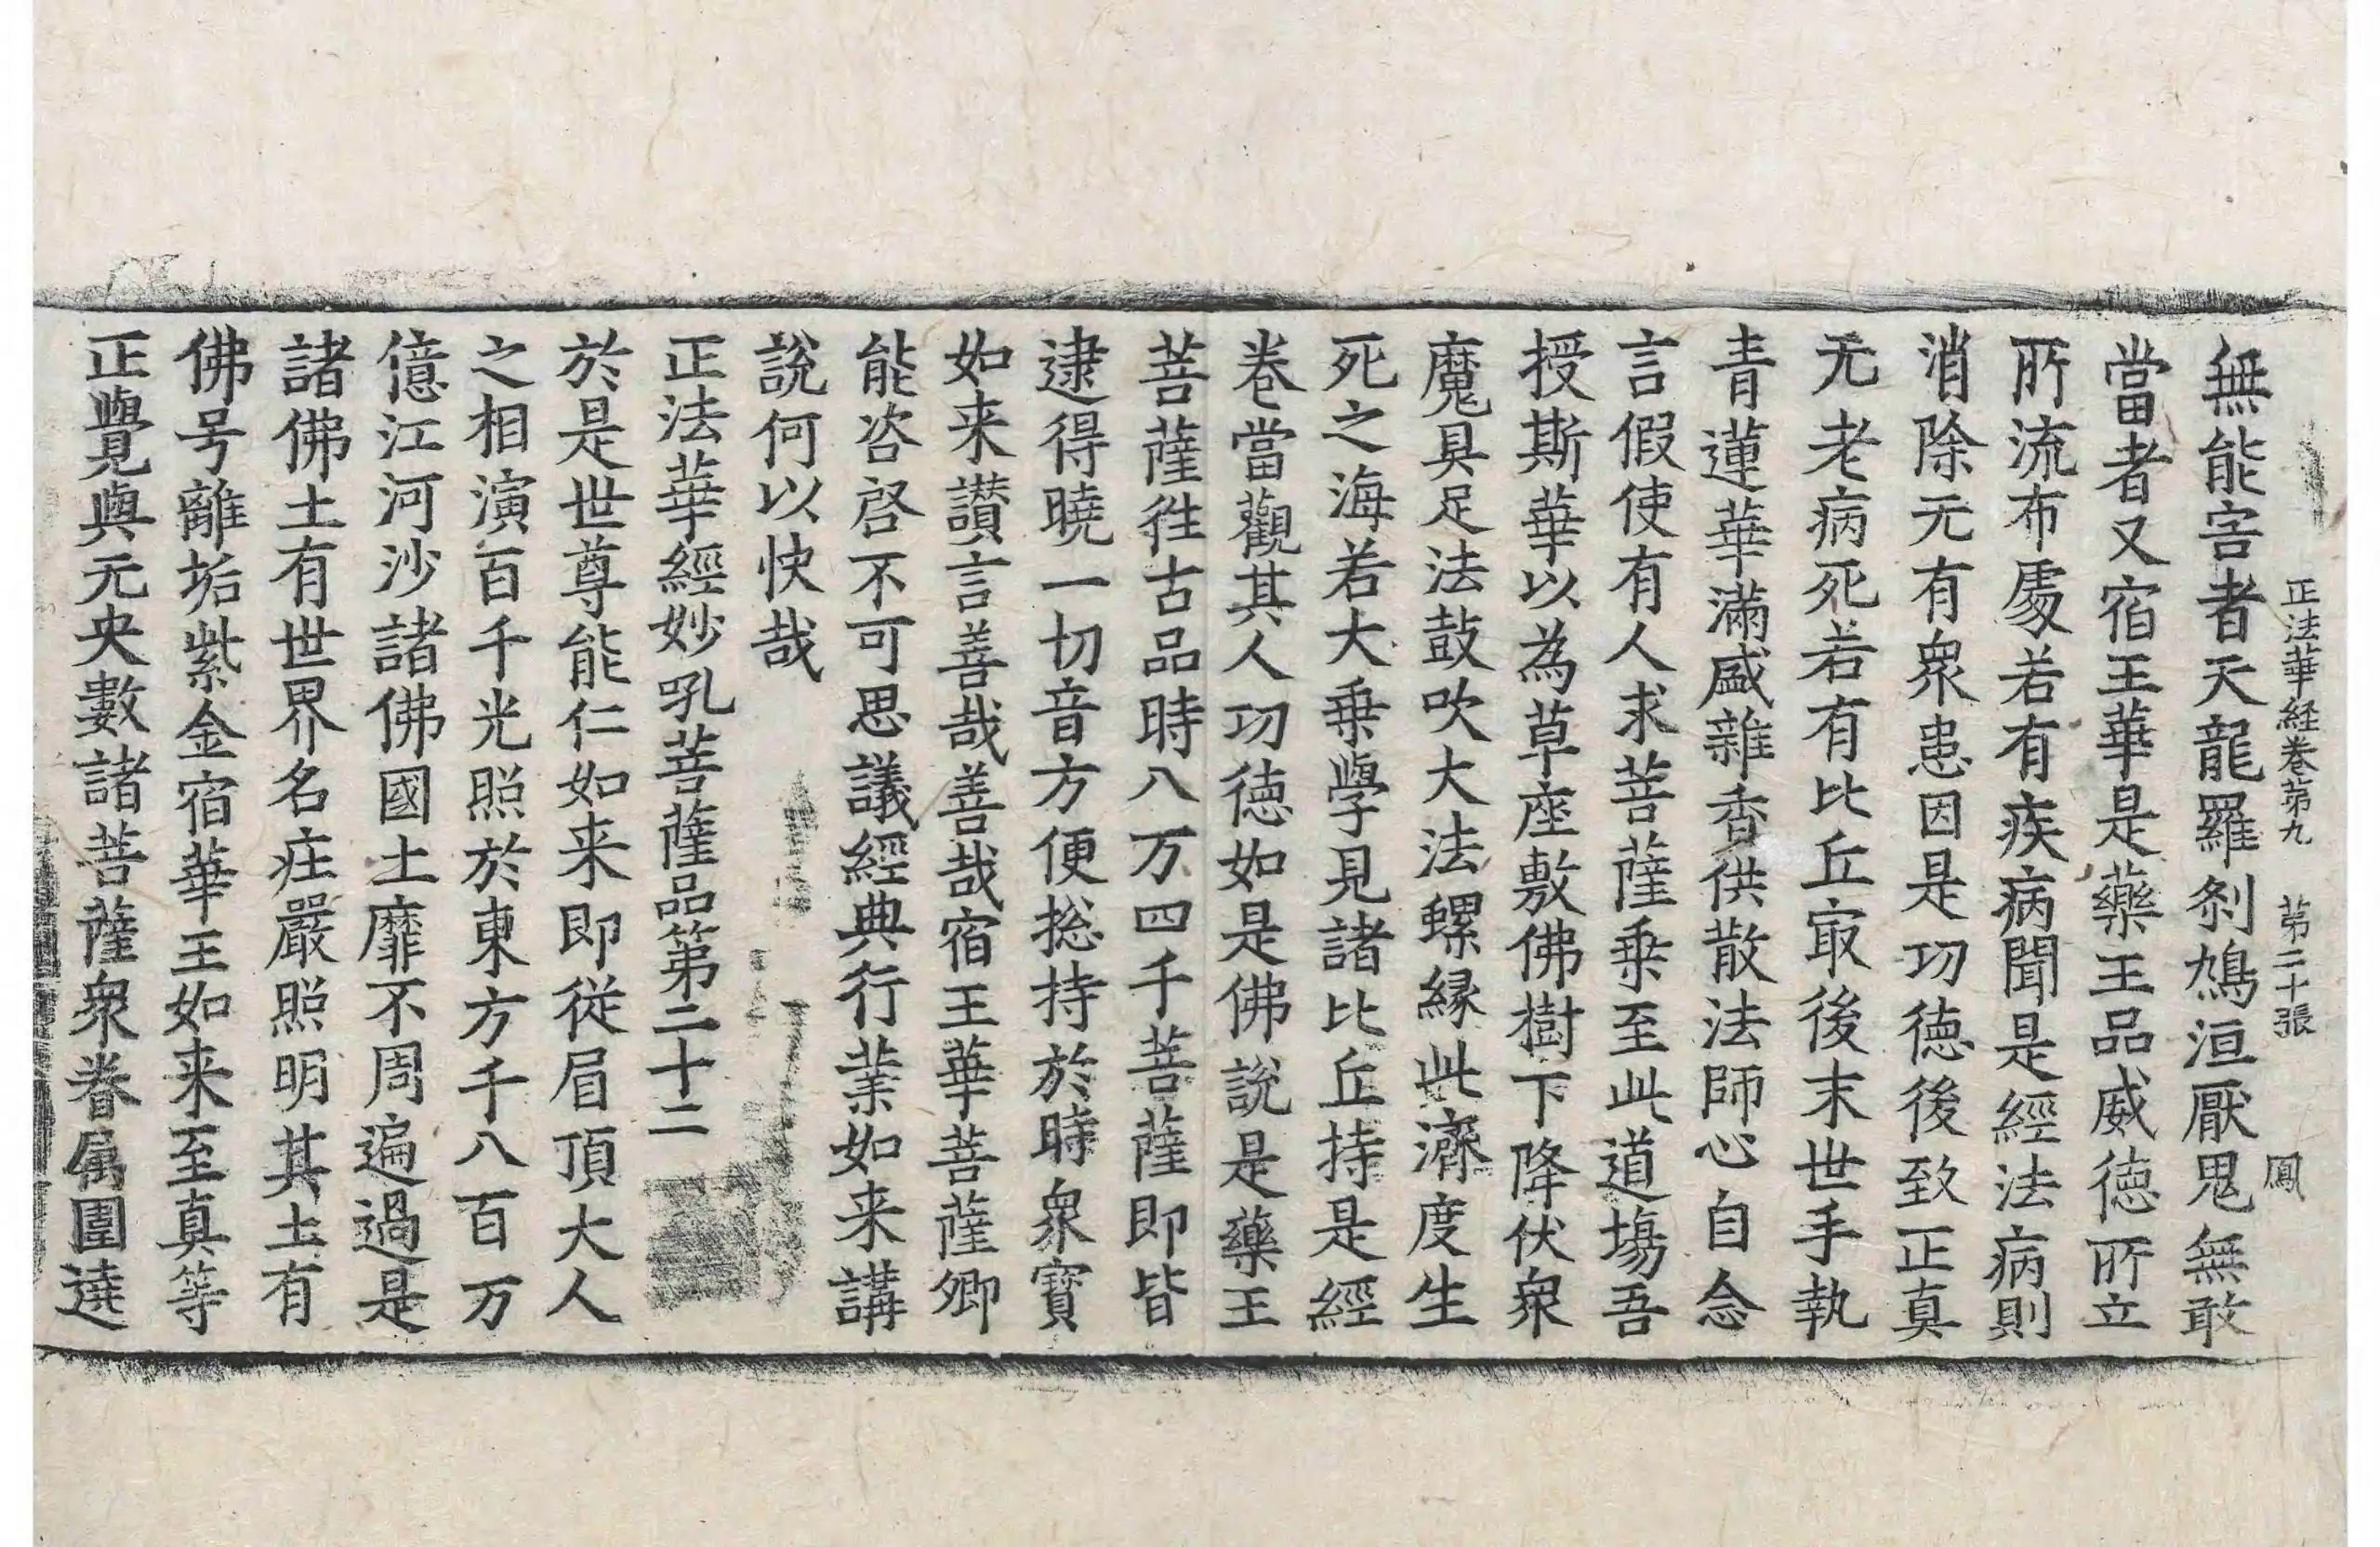 正法華経卷第九 第二十張 鳳
無能害者天龍羅剎鳩洹厭鬼無敢
當者又宿王華是藥王品威徳所立
所流布處若有疾病聞是經法病則
消除无有衆患因是功徳後致正真
无老病死若有比丘㝡後末世手執
青蓮華滿盛雜香供散法師心自念
言假使有人求菩薩乗至此道塲吾
授斯華以為草座敷佛樹下降伏衆
魔具足法鼓吹大法螺縁此濟度生
死之海若大乗學見諸比丘持是經
卷當觀其人功徳如是佛說是藥王
菩薩徃古品時八万四千菩薩即皆
逮得曉一切音方便捴持於時衆寳
如来讃言善哉善哉宿王華菩薩卿
能咨啓不可思議經典行業如来講
說何以快哉
正法華經妙吼菩薩品第二十二
於是世尊能仁如来即従眉頂大人
之相演百千光照於東方千八百万
億江河沙諸佛國土靡不周遍過是
諸佛土有世界名庄嚴照明其土有
佛号離垢紫金宿華王如来至真等
正覺與无央數諸菩薩衆眷属圍遶